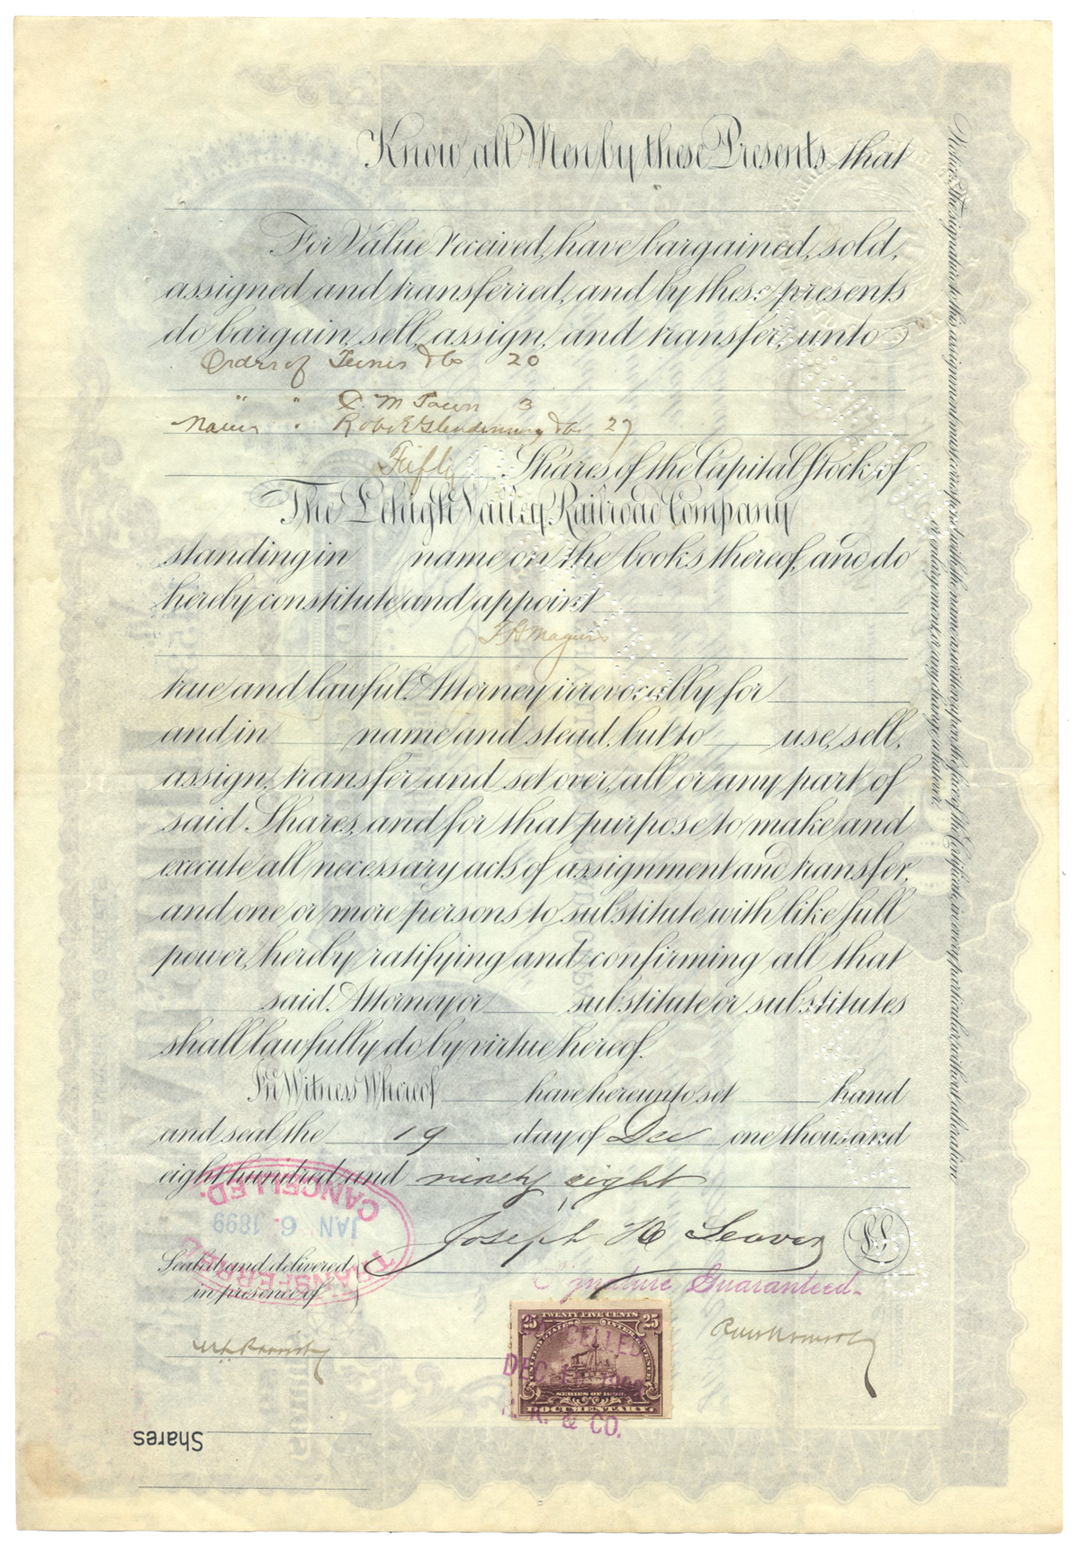 Know all Men by these Presents that
For Value received, have bargained, sold,
assigned and transferred, and by these presents
do bargain, sell, assign, and transfer, unto
Order of & Co 20
" " M Town 3
Name " Robt Glendinning & Co 27
Fifty Shares of the Capital Stock of
The Lehigh Valley Railroad Company
standing in name on the books thereof, and do
hereby constitute and appoint
true and lawful Attorney irrevocably for
and in name and stead, but to use, sell,
assign, transfer and set over, all or any part of
said Shares, and for that purpose to make and
execute all necessary acts of assignment and transfer,
and one or more persons to substitute with like full
power, hereby ratifying and confirming all that
said Attorney or substitute or substitutes
shall lawfully do by virtue hereof.
In Witness Whereof have hereunto set hand
and seal the 19 day of Dec one thousand
eight hundred and ninety eight
Joseph H Seaver
L.S.
Sealed and delivered
in presence of
Signature Guaranteed.
TRANSFERRED
JAN 6 - 1899
CANCELLED.
25 TWENTY FIVE CENTS 25
UNITED STATES INTER. REVENUE
SERIES OF 1898
DOCUMENTARY.
CANCELLED
DEC
& CO.
Shares
Notice, The signature to this assignment must correspond with the name as written upon the face of the Certificate, in every particular, without alteration
or enlargement or any change whatever.